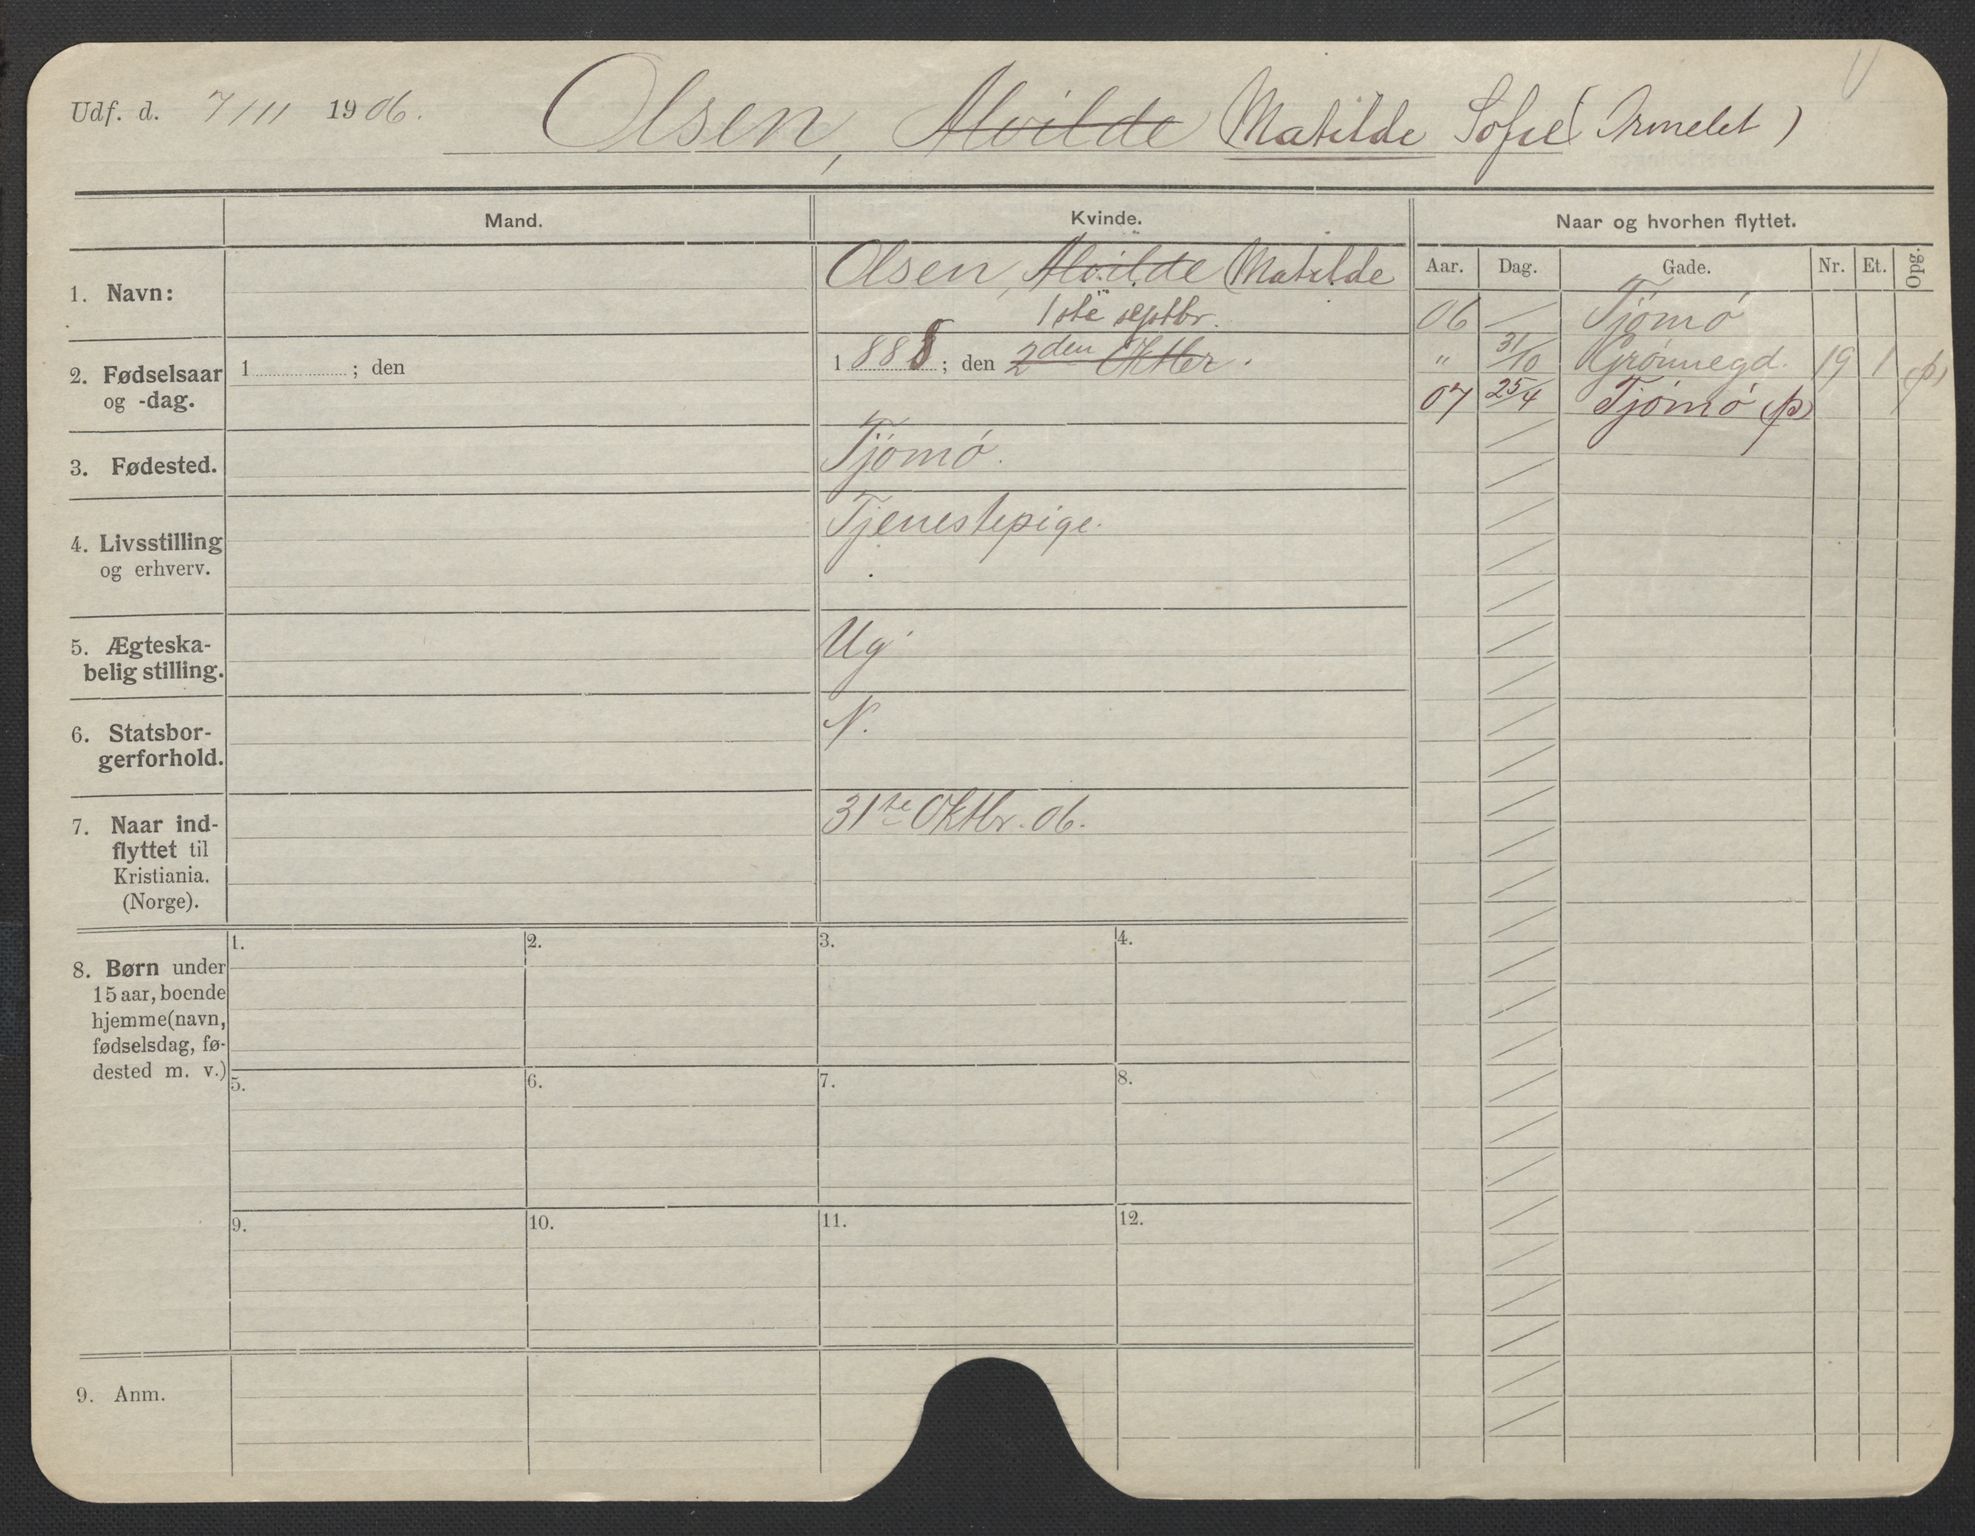 Udf. d. 7/11 1906. Olsen, Alvilde Matilde Sofie (Irmelet)
Mand.
Kvinde.
Naar og hvorhen flyttet.
Aar. Dag. Gade. Nr. Et. Opg.
1. Navn:
Olsen, Alvilde (Matilde
1ste septbr.
2. Fødselsaar
og -dag.
1 ; den
1888; den 2den Oktbr.
3. Fødested.
Tjømø.
4. Livsstilling
og erhverv.
Tjenestepige.
5. Ægteska-
belig stilling.
Ug.
6. Statsbor-
gerforhold.
N.
7. Naar ind-
flyttet til
Kristiania.
(Norge).
31te Oktbr. 06.
06 Tjømø
" 31/10 Grønnegd. 19 1 (p)
07 25/4 Tjømø (p)
8. Børn under
15 aar, boende
hjemme (navn,
fødselsdag, fø-
dested m. v.)
1. 2. 3. 4.
5. 6. 7. 8.
9. 10. 11. 12.
9. Anm.